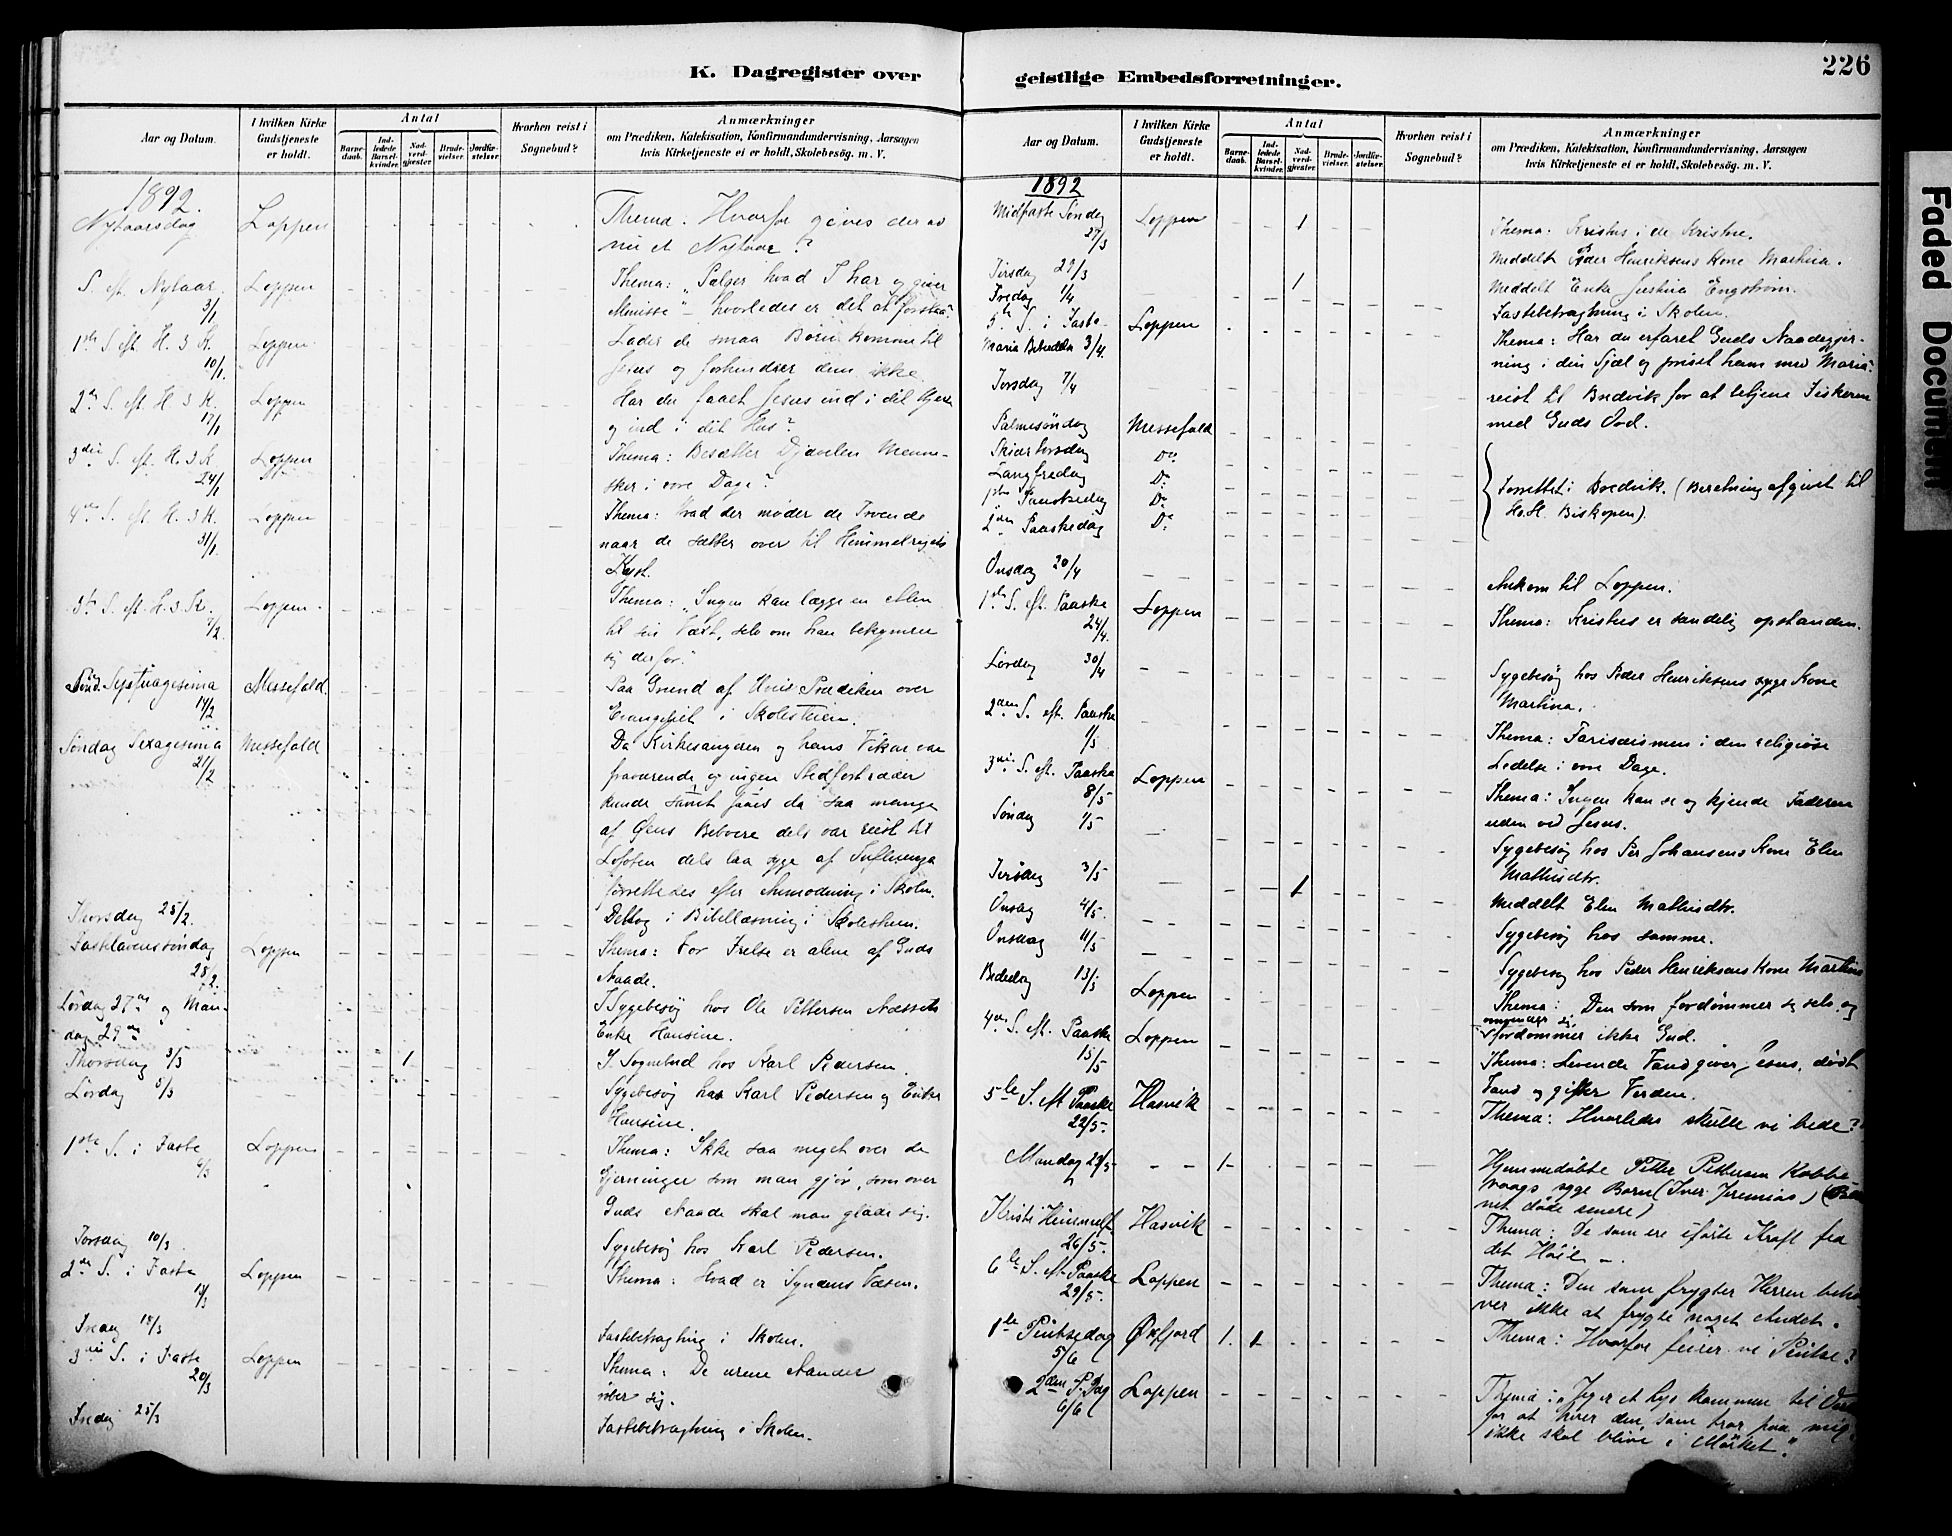 K. Dagregister over
Aar og Datum.
I hvilken Kirke Gudstjeneste er holdt.
Antal
Barnedaab.
Indledede Barselkvinder.
Nadverdgjester
Brudevielser.
Jordfæstelser.
Hvorhen reist i Sognebud?
Anmærkninger
om Prædiken, Katekisation, Konfirmandundervisning, Aarsagen
hvis Kirketjeneste ei er holdt, Skolebesög. m. V.
1892.
Nytaarsdag Loppen Thema: Hvorfor gives der os
nu et Nytaar?
S. eft. Nytaar 3/1 Loppen Thema: "Sælger hvad I har og giver
Almisse" - hvorledes er det at forstaa?
1ste S. eft. H. 3 K. 10/1. Loppen Lader de smaa Børn komme til
Jesus og forhindrer dem ikke.
2den S. eft. H. 3 K. 17/1 Loppen Har du faaet Jesus ind i dit Hjerte
og ind i dit Hus?
3die S. eft. H. 3 K. 24/1 Loppen Thema: Besætter Djævelen Menne-
sker i vore Dage?
4de S. eft. H. 3 K. 31/1 Loppen Thema: Hvad der møder de Troende
naar de sætter over til Himmelrigets
Kyst.
5te S. eft. H. 3 K. 7/2. Loppen Thema: "Ingen kan lægge en Alen
til sin Væxt, selv om han bekymrer
sig derfor."
Sønd. Septuagesima 14/2 Messefald. Paa Grund af Prædiken over
Evangeliet i Skolestuen.
Søndag Sexagesima 21/2 Messefald Da Kirkesangeren og hans Vikar var
fraværende og ingen Stedfortræder
kunde faaes da saa mange
af Øens Beboere dels var reist til
Lofoten dels laa syge af Influenza
forrettedes efter Anmodning i Skolen.
Thorsdag 25/2. Deltog i Bibellæsning i Skolestuen.
Fastelavenssøndag 28/2. Loppen Thema: Vor Frelse er alene af Guds
Naade.
Lørdag 27de og Man- I Sygebesøg hos Ole Pettersen Næssets
dag 29de Enke Hansine.
Thorsdag 3/3 1 I Sognebud hos Karl Pedersen.
Lørdag 5/3 Sygebesøg hos Karl Pedersen og Enke
Hansine.
1ste S. i Faste 6/3 Loppen Thema: Ikke saa meget over de
Gjerninger som man gjør, som over
Guds Naade skal man glæde sig.
Torsdag 10/3 Sygebesøg hos Karl Pedersen.
2den S. i Faste 13/3 Loppen Thema: Hvad er Syndens Væsen.
Fredag 18/3 Fastebetragtning i Skolen.
3die S. i Faste 20/3 Loppen Thema: De urene Aander
sig.
Fredag 25/3 Fastebetragtning i Skolen.
geistlige Embedsforretninger.
226
Aar og Datum.
I hvilken Kirke Gudstjeneste er holdt.
Antal
Barnedaab.
Indledede Barselkvinder.
Nadverdgjester
Brudevielser.
Jordfæstelser.
Hvorhen reist i Sognebud?
Anmærkninger
om Prædiken, Katekisation, Konfirmandundervisning, Aarsagen
hvis Kirketjeneste ei er holdt, Skolebesög. m. V.
1892
Midfaste Søndag 27/3 Loppen 1 Thema: Kristus i de Kristne.
Meddelt Peder Henriksens Kone Martina.
Tirsdag 29/3 1 Meddelt Enke Justina Engstrøm.
Fredag 1/4 Fastebetragtning i Skolen.
5te S. i Faste Loppen Thema: Har du erfaret Guds Naadegjer-
Maria Bebudelse 3/4. ning i din Sjæl og priset ham med Maria.
Torsdag 7/4 reist til Bredvik for at betjene Fiskeren
med Guds Ord.
Palmesøndag Messefald
Skjærtorsdag Do
Langfredag Do Forrettet i Bredvik. (Beretning afgivet til
1ste Paaskedag Do Hr. H. Biskopen).
2den Paaskedag Do
Onsdag 20/4 Ankom til Loppen.
1ste S. eft. Paaske 24/4. Loppen Thema: Kristus er sandelig opstanden.
Lørdag 30/4 Sygebesøg hos Peder Henriksens syge Kone
Martina.
2den S. eft. Paaske 1/5 Thema: Farisæismen i den religiøse
Ledelse i vore Dage.
3die S. eft. Paaske 8/5 Loppen Thema: Ingen kan se og kjende Faderen
uden ved Jesus.
Søndag 1/5 Sygebesøg hos Per Johansens Kone Elen
Mathisdtr.
Tirsdag 3/5 1 Meddelt Elen Mathisdtr.
Onsdag 4/5. Sygebesøg hos samme.
Onsdag 11/5 Sygebesøg hos Peder Henriksens Kone Martina
Bededag 13/5 Loppen Thema: Den som fordømmer sig selv og
omvender sig,
fordømmer ikke Gud.
4de S. eft. Paaske 15/5 Loppen Thema: Levende Vand giver Jesus, dødt
Vand og gifter Verden.
5te S. eft. Paaske 22/5. Hasvik Thema: Hvorledes skulle vi bede?
Mandag 23/5 1 Hjemmedøbte Petter Pettersen Kobbe-
vaags syge Barn (Iver Jeremias) (Bar-
net døde senere)
Kristi Himmelf. 26/5. Hasvik Thema: De som ere iførte Kraft fra
det Høie.
6te S. eft. Paaske 29/5. Loppen Thema: Den som frygter Herren behø-
ver ikke at frygte noget Andet.
1ste Pintsedag 5/6 Øxfjord 1. 1 Thema: Hvorfor feirer vi Pintse?
2den P. Dag 6/6 Loppen Thema: "Jeg er et Lys kommen til Verden
for at hver den, som tror paa mig,
ikke skal blive i Mørket."
Faded Document